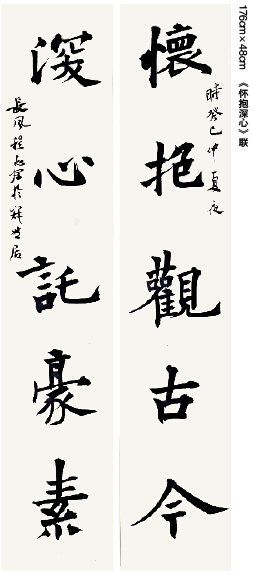 176cm×48cm 《怀抱深心》联
懷抱觀古今
時癸巳仲夏夜
深心託豪素
長風程